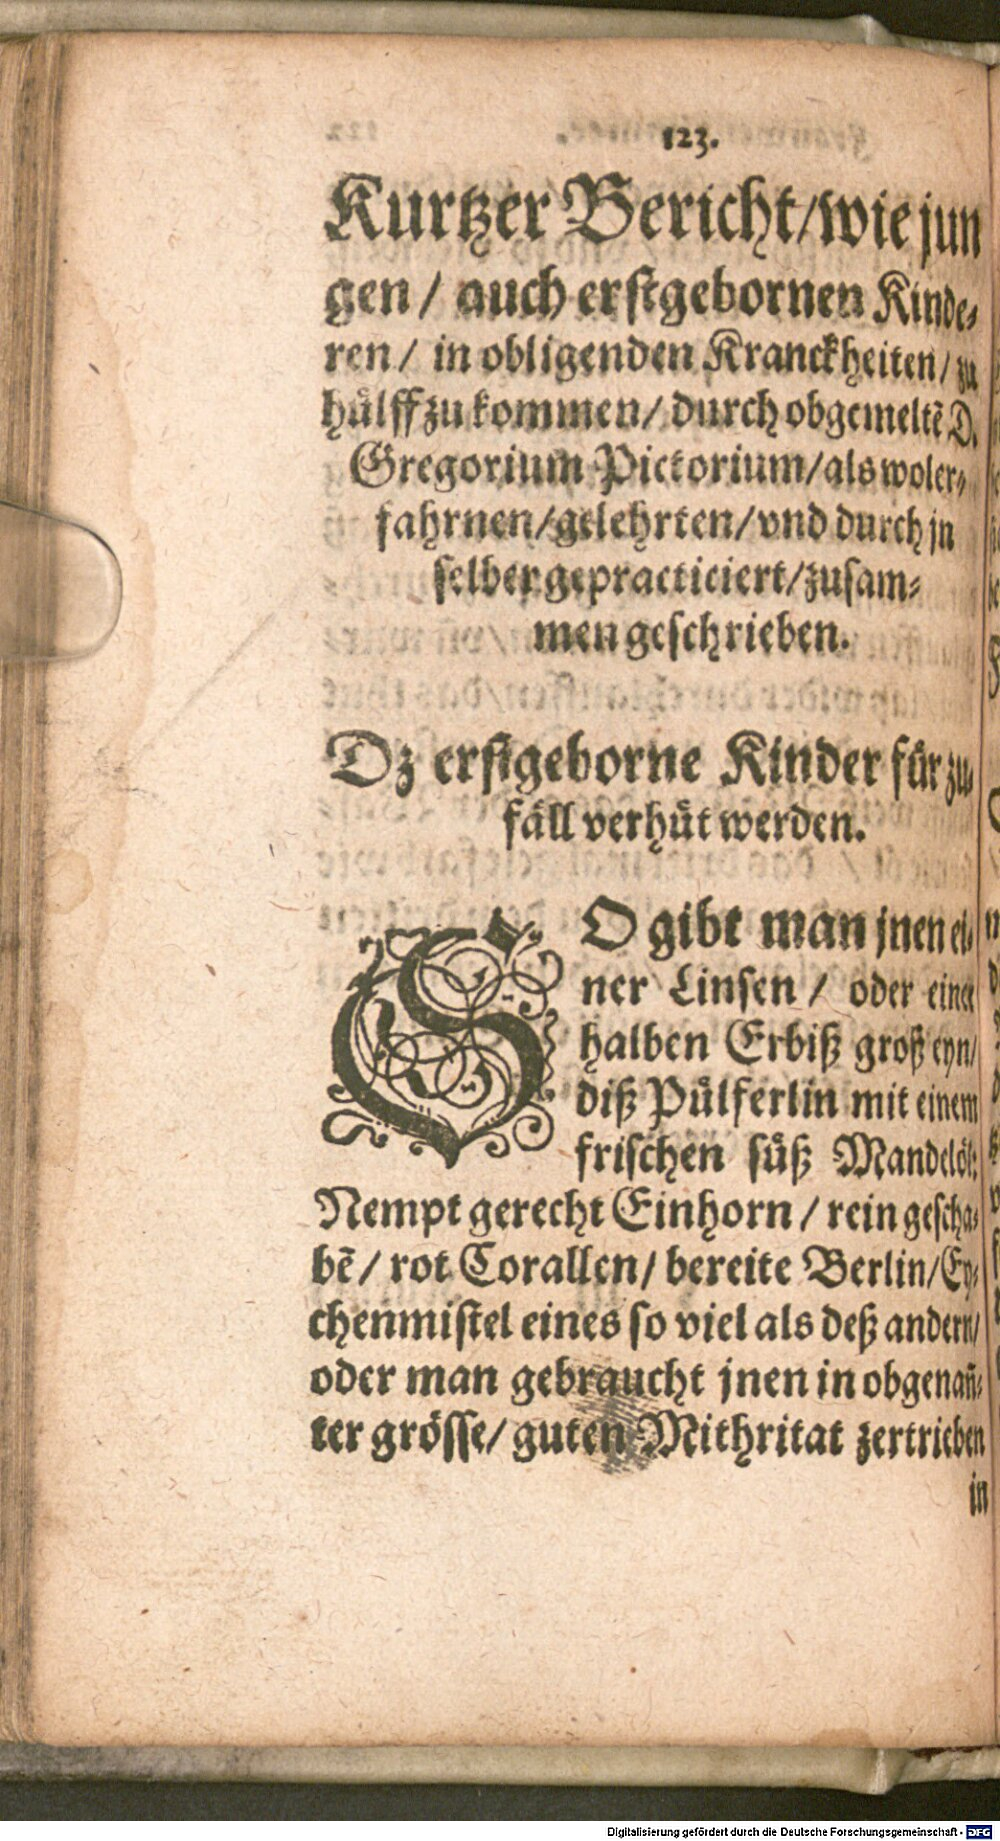 123.
Kurtzer Bericht/wie jun
gen/ auch erstgebornen Kinde⸗
ren/ in obligenden Kranckheiten/ zu
huͤlff zu kommen/ durch obgemeltẽ D.
Gregorium Pictorium/als woler⸗
fahrnen/gelehrten/vnd durch jn
selber gepracticiert/zusam⸗
men geschrieben.
Dz erstgeborne Kinder fuͤr zu⸗
faͤll verhuͤt werden.
SO gibt man jnen ei⸗
ner Linsen/ oder einer
halben Erbiß groß eyn/
diß Puͤlferlin mit einem
frischen suͤß Mandeloͤl:
Nempt gerecht Einhorn/ rein gescha⸗
bẽ/ rot Corallen/ bereite Berlin/Ey⸗
chenmistel eines so viel als deß andern/
oder man gebraucht jnen in obgenañ⸗
ter groͤsse/ guten Mithritat zertrieben
in
Digitalisierung gefördert durch die Deutsche Forschungsgemeinschaft - DFG